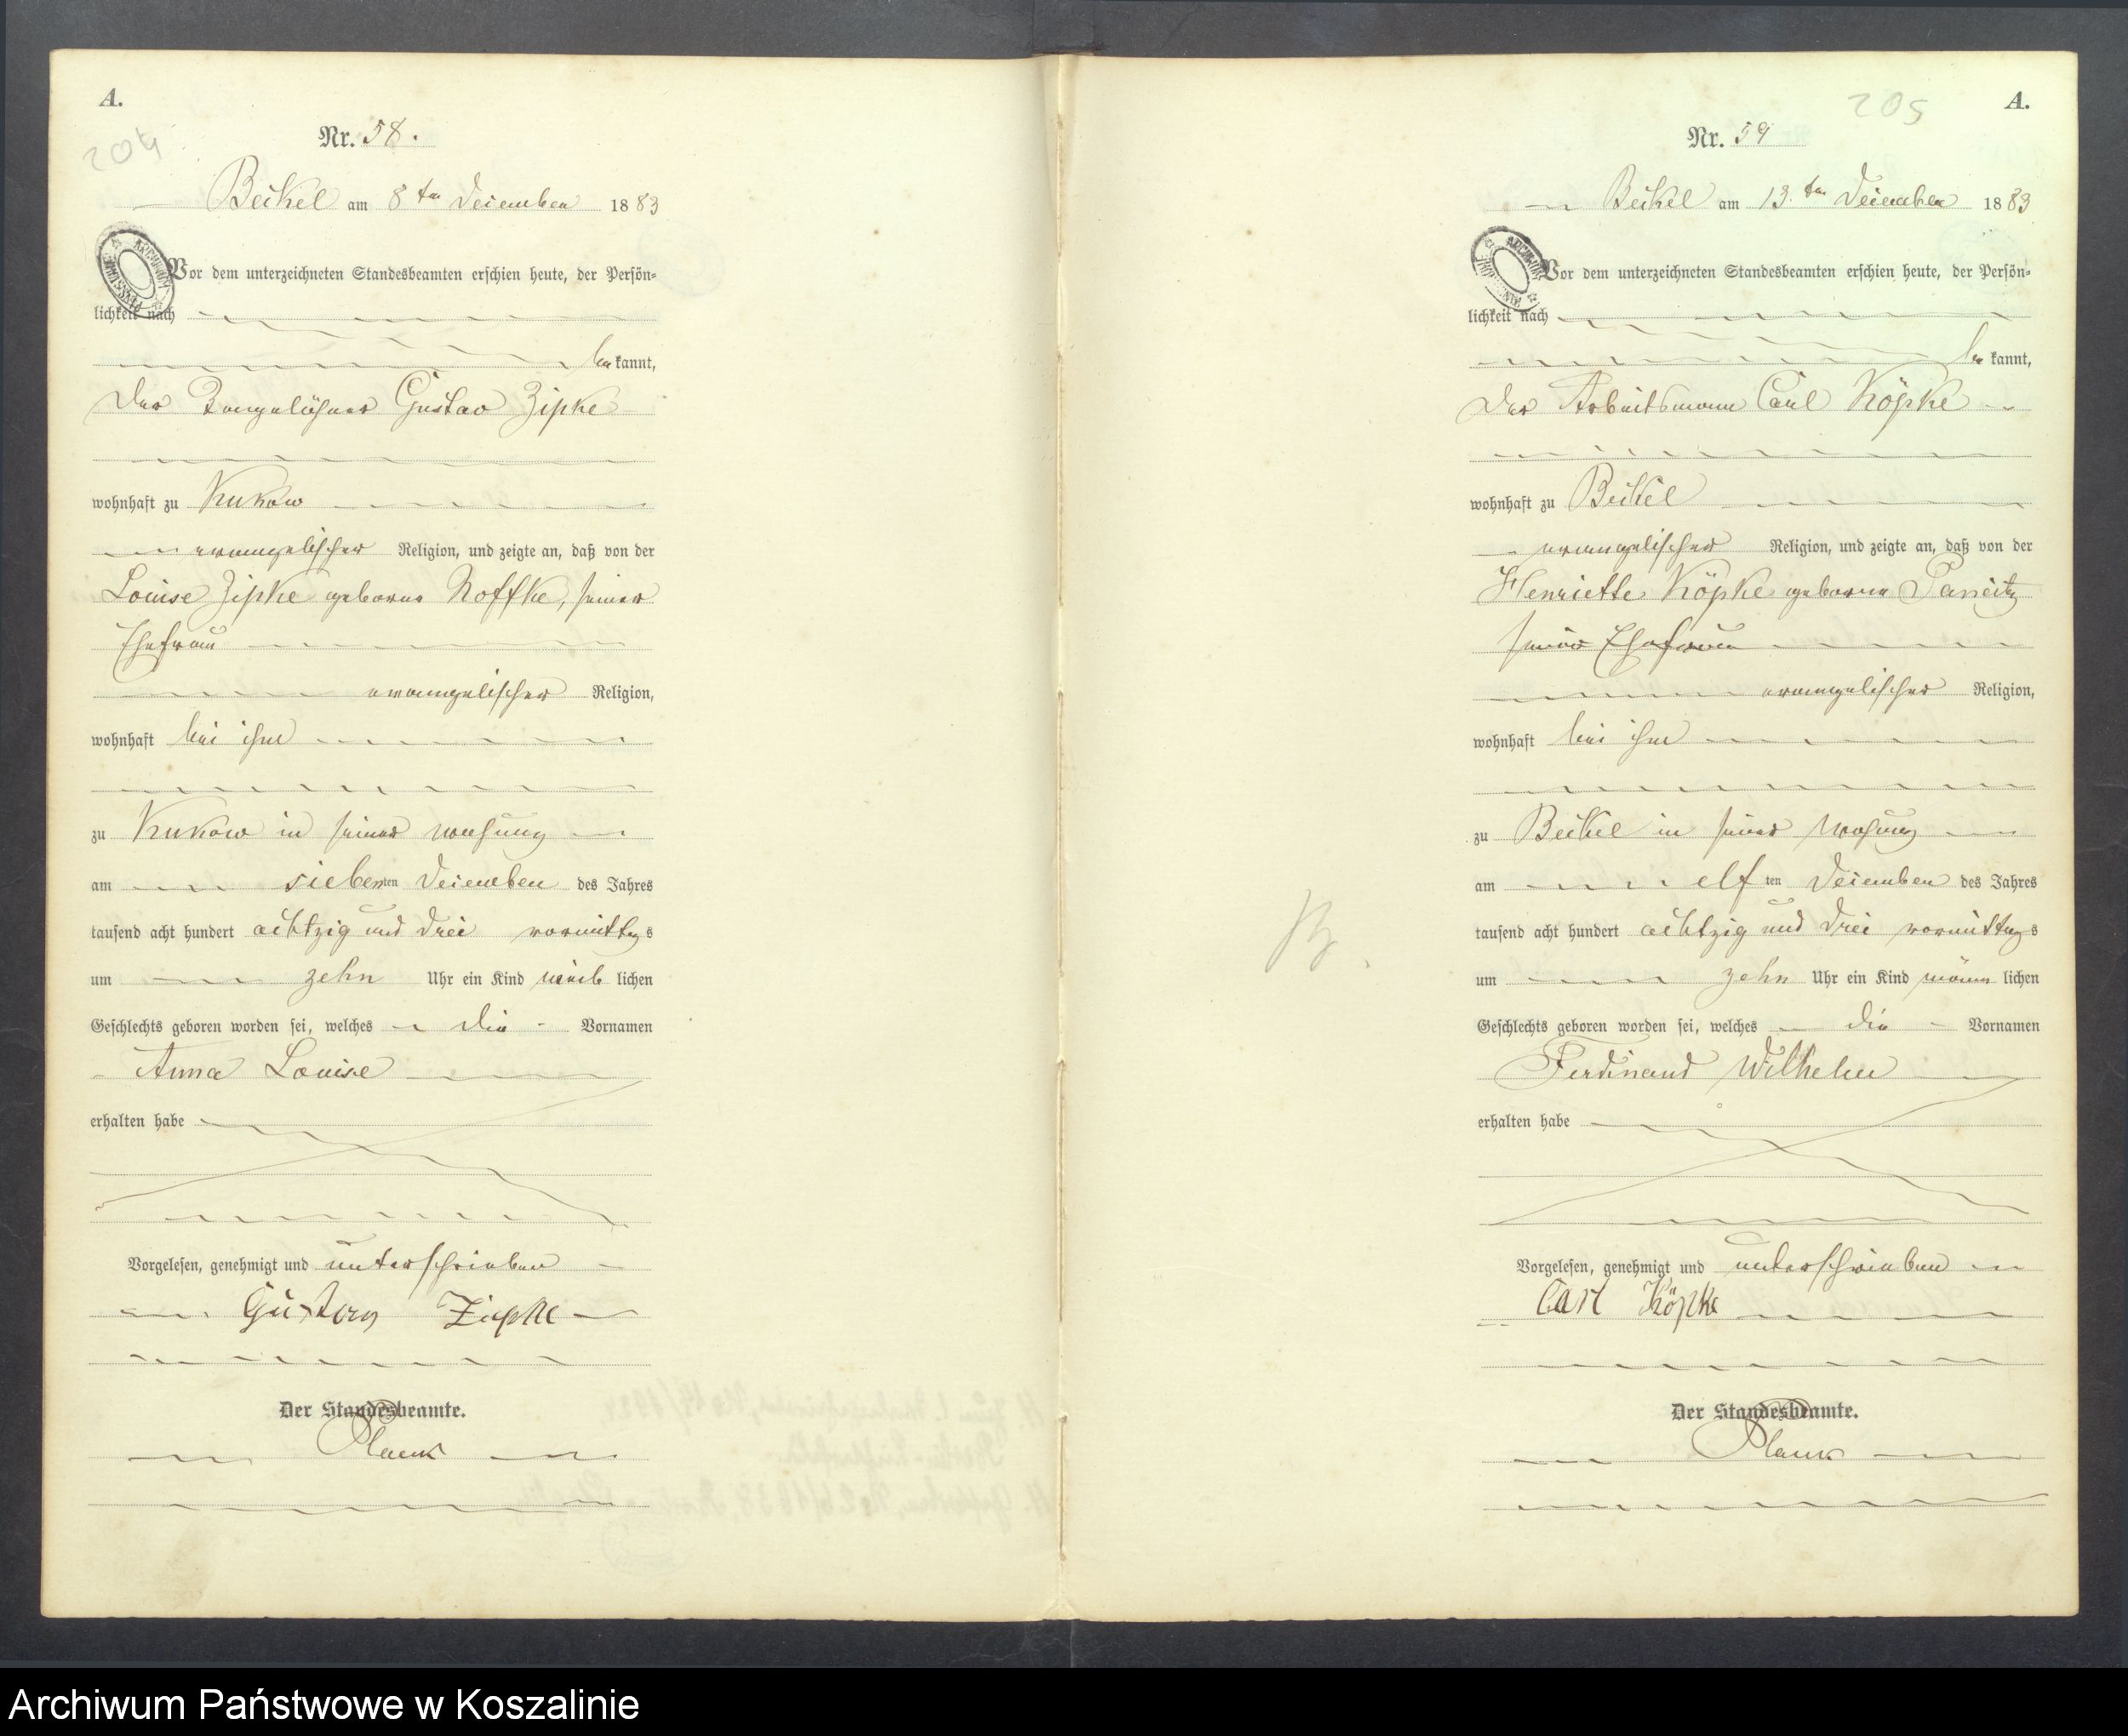 A.
204
Nr. 58.
Beckel am 8ten December 1883
Vor dem unterzeichneten Standesbeamten erschien heute, der Persön-
lichkeit nach
bekannt,
der Gustav Zipke
wohnhaft zu Kukow
evangelischer Religion, und zeigte an, daß von der
Louise Zipke geborne Noffke, seiner
Ehefrau
evangelischer Religion,
wohnhaft bei ihm
zu Kukow in seiner Wohnung
am siebenten December des Jahres
tausend acht hundert achtzig und drei vormittags
um zehn Uhr ein Kind weiblichen
Geschlechts geboren worden sei, welches die Vornamen
Anna Louise
erhalten habe
Vorgelesen, genehmigt und unterschrieben
Gustav Zipke
Der Standesbeamte.
205
A.
Nr. 59
Beckel am 13.ten December 1883
Vor dem unterzeichneten Standesbeamten erschien heute, der Persön-
lichkeit nach
bekannt,
Der Arbeitsmann Carl Köpke
wohnhaft zu Beckel
evangelischer Religion, und zeigte an, daß von der
Henriette Köpke geborne
seiner Ehefrau
evangelischer Religion,
wohnhaft bei ihm
zu Beckel in seiner Wohnung
am elften December des Jahres
tausend acht hundert achtzig und drei vormittags
um zehn Uhr ein Kind männlichen
Geschlechts geboren worden sei, welches die Vornamen
Ferdinand Wilhelm
erhalten habe
Vorgelesen, genehmigt und unterschrieben
Carl Köpke
Der Standesbeamte.
Archiwum Państwowe w Koszalinie